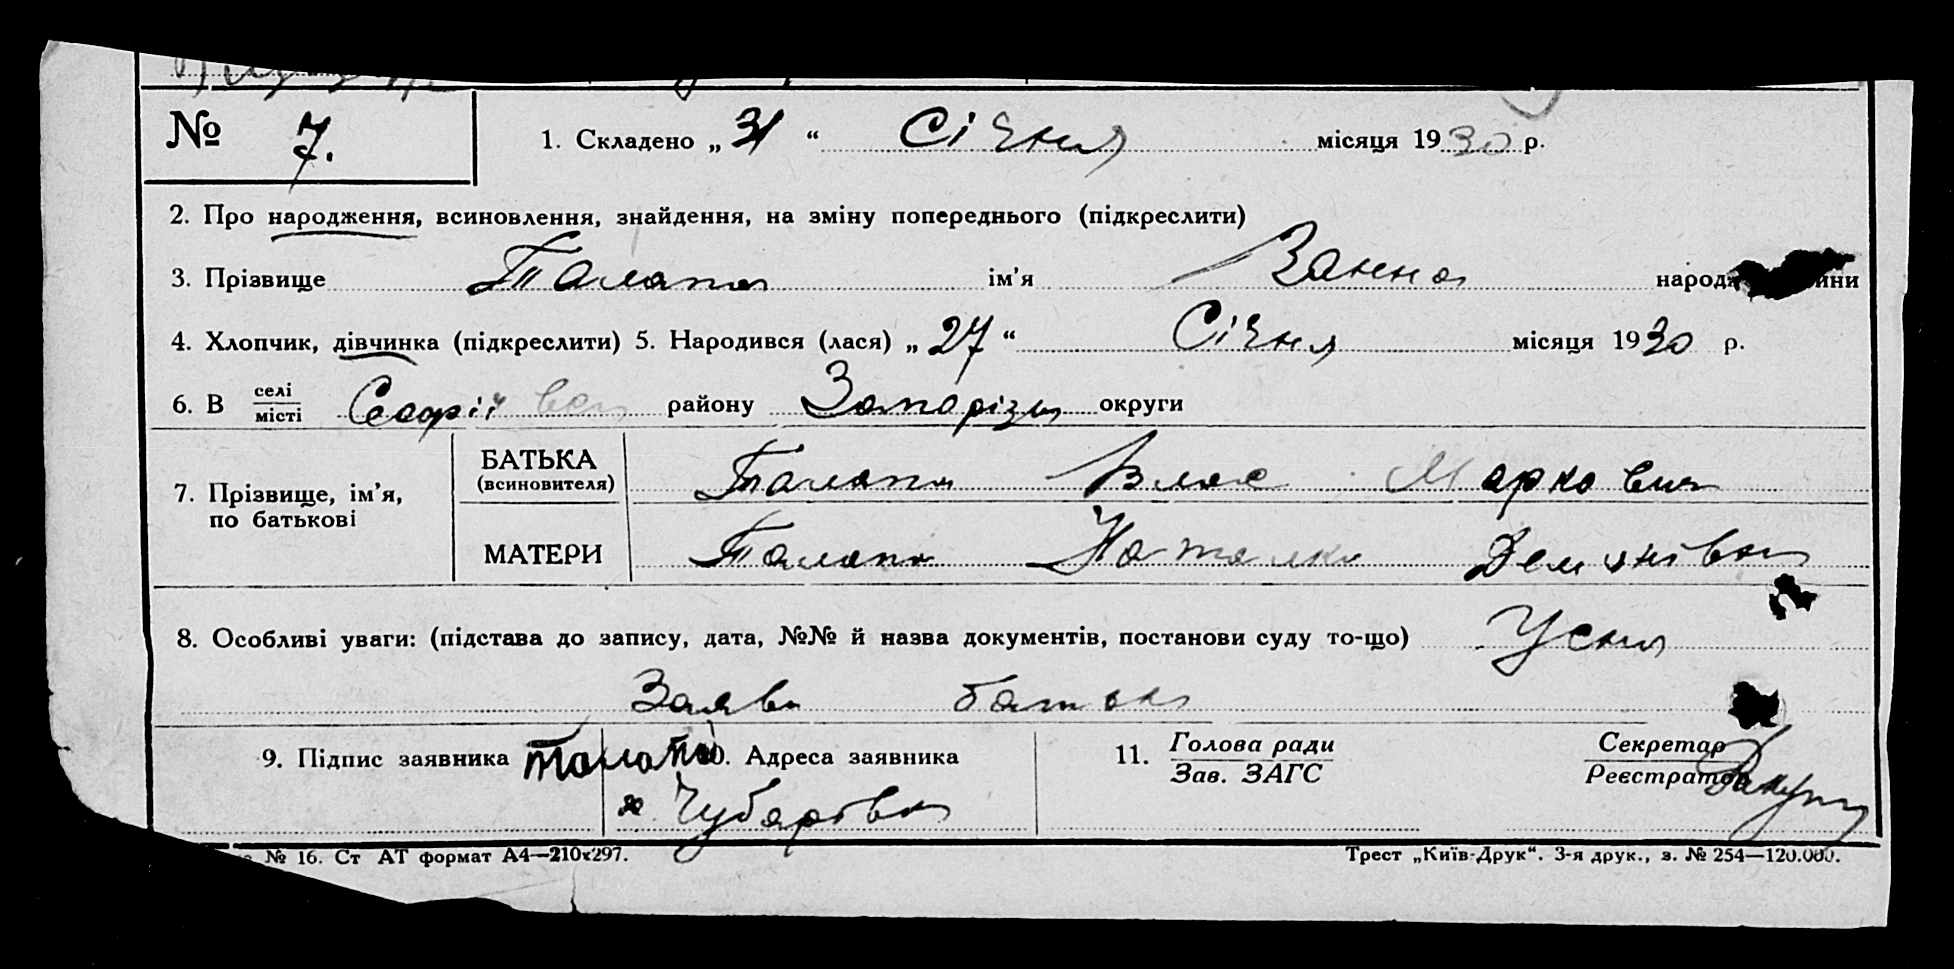 № 7. 1. Складено „31“ Січня місяця 1930 р.
2. Про народження, всиновлення, знайдення, на зміну попереднього (підкреслити)
3. Прізвище Талапа ім’я Ванна
4. Хлопчик, дівчинка (підкреслити) 5. Народився (лася) „27“ Січня місяця 1930 р.
6. В селі/місті району округи
7. Прізвище, ім’я, по батькові
БАТЬКА (всиновителя) Талапа Влас Маркович
МАТЕРИ Талапа Наталка Демянівна
8. Особливі уваги: (підстава до запису, дата, №№ й назва документів, постанови суду то-що) Усна
Заява батька
9. Підпис заявника Талапа 10. Адреса заявника 11. Голова ради Секретар
Зав. ЗАГС Реєстратор
х. Чубарівка
№ 16. Ст АТ формат А4—210х297. Трест „Київ-Друк“. 3-я друк., з. № 254—120.000.